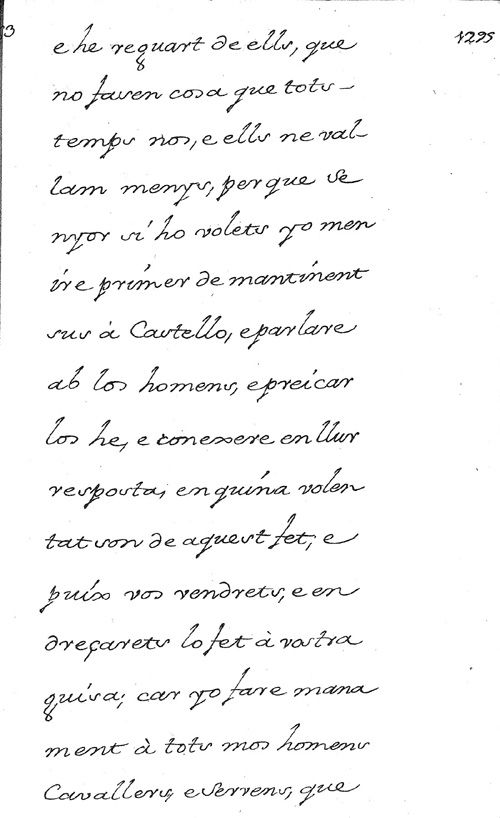 3
1295
e he reguart de ells, que
no fassen cosa que tots-
temps nos, e ells ne val-
lam menys, perque Se
nyor si ho volets yo men
ire primer de mantinent
sus à Castello, e parlare
ab los homens, e preicar
los he, e conexere en llur
resposta, en quina volen
tat son de aquest fet; e
puix vos vendrets, e en
dreçarets lo fet à vostra
guisa; car yo fare mana
ment à tots mos homens
Cavallers, e Servens, que